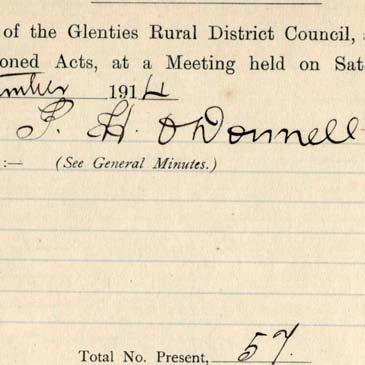 of the Glenties Rural District Council,
oned Acts, at a Meeting held on Sat
mber 1914
P. H. O'Donnell
:— (See General Minutes.)
Total No. Present, 57.